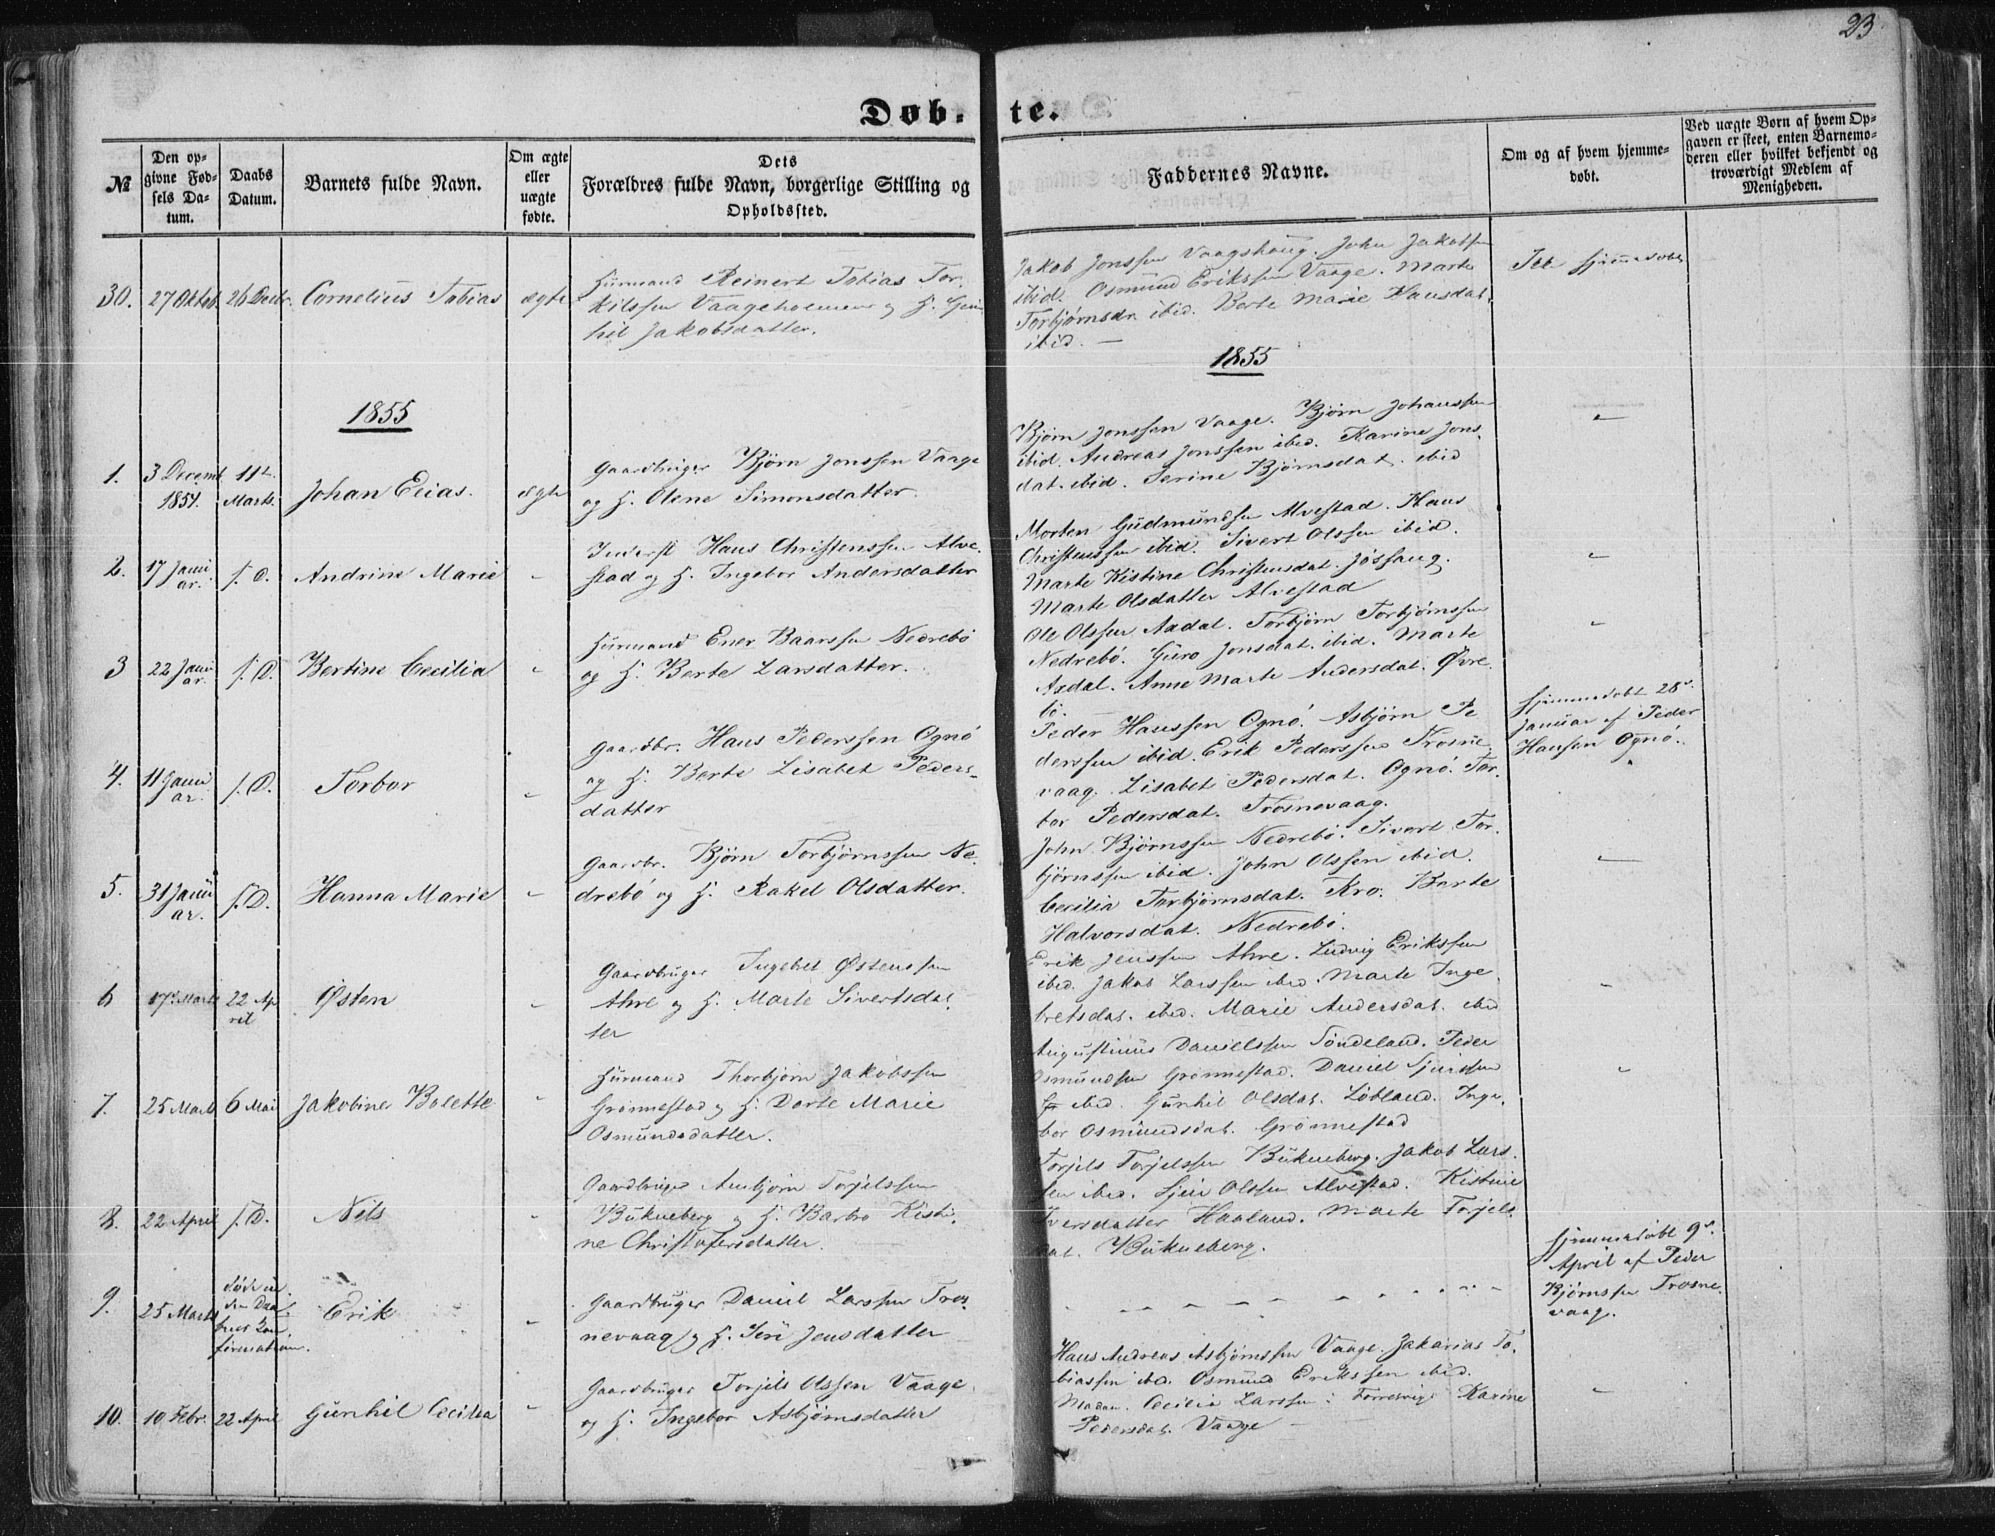 23
Døb- te.
№
Den op-
givne Fød-
sels Da-
tum.
Daabs
Datum.
Barnets fulde Navn.
Om ægte
eller
uægte
fødte.
Dets
Forældres fulde Navn, borgerlige Stilling og
Opholdssted.
Faddernes Navne.
Om og af hvem hjemme-
døbt.
Ved uægte Børn af hvem Op-
gaven er skeet, enten Barnemo-
deren eller hvilket bekjendt og
troværdigt Medlem af
Menigheden.
30. 27 Oktob. 26 Decbr. Cornelius Tobias ægte
Huusmand Reinert Tobias Tor-
kilssen Vaageholmen og H. Gun
hil Jakobsdatter.
Jakob Jonssen Vaagshaug. John Jakobsen
ibid. Osmund Erikssen Vaage. Marte
Torbjørnsdr ibid. Berte Marie Hansdat.
ibid. —
Ikke hjemmedøbt
1855
1855
1. 3 Decemb 1854. 11te Marts. Johan Elias. ægte
Gaardbruger Bjørn Jonssen Vaage
og H. Olene Simonsdatter.
Bjørn Jonssen Vaage. Bjørn Johanssen
ibid. Andreas Jonssen ibid. Karine Jons-
dat. ibid. Serine Bjørnsdat. ibid
"
2. 17 Janu ar. s. D. Andrine Marie "
Inderst Hans Christenssen Alve-
stad og H. Ingebor Andersdatter
Morten Gudmundsen Alvestad. Hans
Christenssen ibid. Sivert Olssen ibid.
Marte Kistine Christensdat. Jøsfang.
Marte Olsdatter Alvestad
"
3 22 Janu ar. s. D. Bertine Cecilia "
Huusmand Ener Baarssen Nedrebø
og H. Berte Larsdatter.
Ole Olssen Axdal. Torbjørn Torbjørnssen
Nedrebø. Guro Jonsdat. ibid. Marte
Axdal. Anne Marte Andersdat. Øvre
bø.
"
4. 11 Janu ar. s. D. Torbor "
Gaardbr. Hans Pederssen Ognø
og H. Berte Lisabet Peders-
datter
Peder Hanssen Ognø. Asbjørn Pe
derssen ibid. Erik Pederssen Trosne-
vaag. Lisabet Pedersdat. Ognø. Tor-
bor Pedersdat. Trosnevaag.
hjemmedøbt 28de
Januar af Peder
Hansen Ognø.
5. 31 Janu ar. s. D. Hanna Marie "
Gaardbr. Bjørn Torbjørnssen Ne-
drebø og H. Rakel Olsdatter.
John Bjørnssen Nedrebø. Sivert Tor-
bjørnssen ibid. John Olssen ibid.
Cecilia Torbjørnsdat. Kro. Berte
Halvorsdat. Nedrebø.
—
6 17de Marts 22 Ap ril Østen "
Gaardbruger Ingebret Østenssen
Ahre og H. Marte Sivertsdat
ter
Erik Jenssen Ahre. Ludvig Erikssen
ibid. Jakob Larssen ibid. Marte Inge
bretsdat. ibid. Marie Andersdat. ibid
"
7. 25 Marts 6 Mai Jakobine Bolette "
Huusmand Thorbjørn Jakobssen
Grønnestad og H. Dorte Marie
Osmundsdatter.
Augustinus Danielssen Søndeland. Peder
Osmundsen Grønnestad. Daniel
ibid. Gunhil Olsdat. Løbland. Inge-
bor Osmundsdat. Grønnestad
"
8. 22 April s. D. Nils "
Gaardbruger Aanbjørn Torjelssen
Bukneberg og H. Barbro Kisti-
ne Christofersdatter.
Torjels Torjelssen Bukneberg. Jakob Lars-
sen ibid. Sjeur Olssen Alvestad. Kistine
Iversdatter Haaland. Marte Torjels-
dat. Bukneberg.
9. 25 Marts Døde in-
den Daa-
bens Con-
firmation. Erik "
Gaardbruger Daniel Larssen Tros-
nevaag og H. Siri Jensdatter
hjemmedøbt 9de
April af Peder
Bjørnssen Trosne-
vaag.
10. 10 Febr. 22 April Gunhil Cecilia "
Gaardbruger Torjels Olssen Vaage
og H. Ingebor Asbjørnsdatter
Hans Andreas Asbjørnssen Vaage. Zakarias To-
biassen ibid. Osmund Erikssen ibid.
Madam Cecilia Larssen i Førresvig. Karine
Pedersdat. Vaage —
"